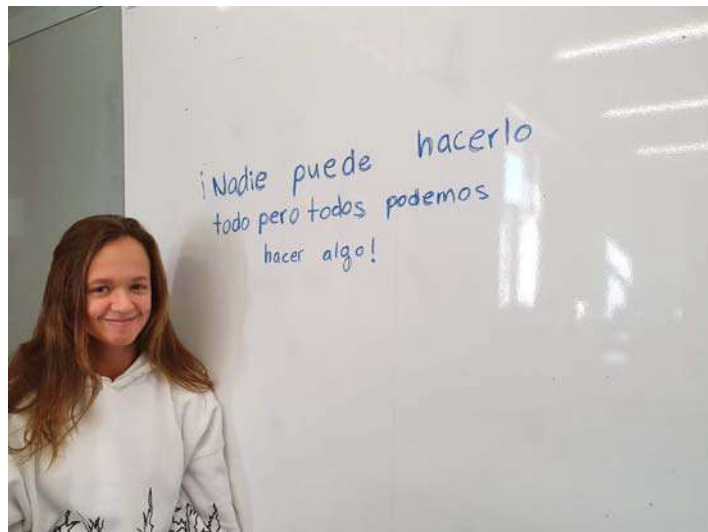 ¡Nadie puede hacerlo
todo pero todos podemos
hacer algo!